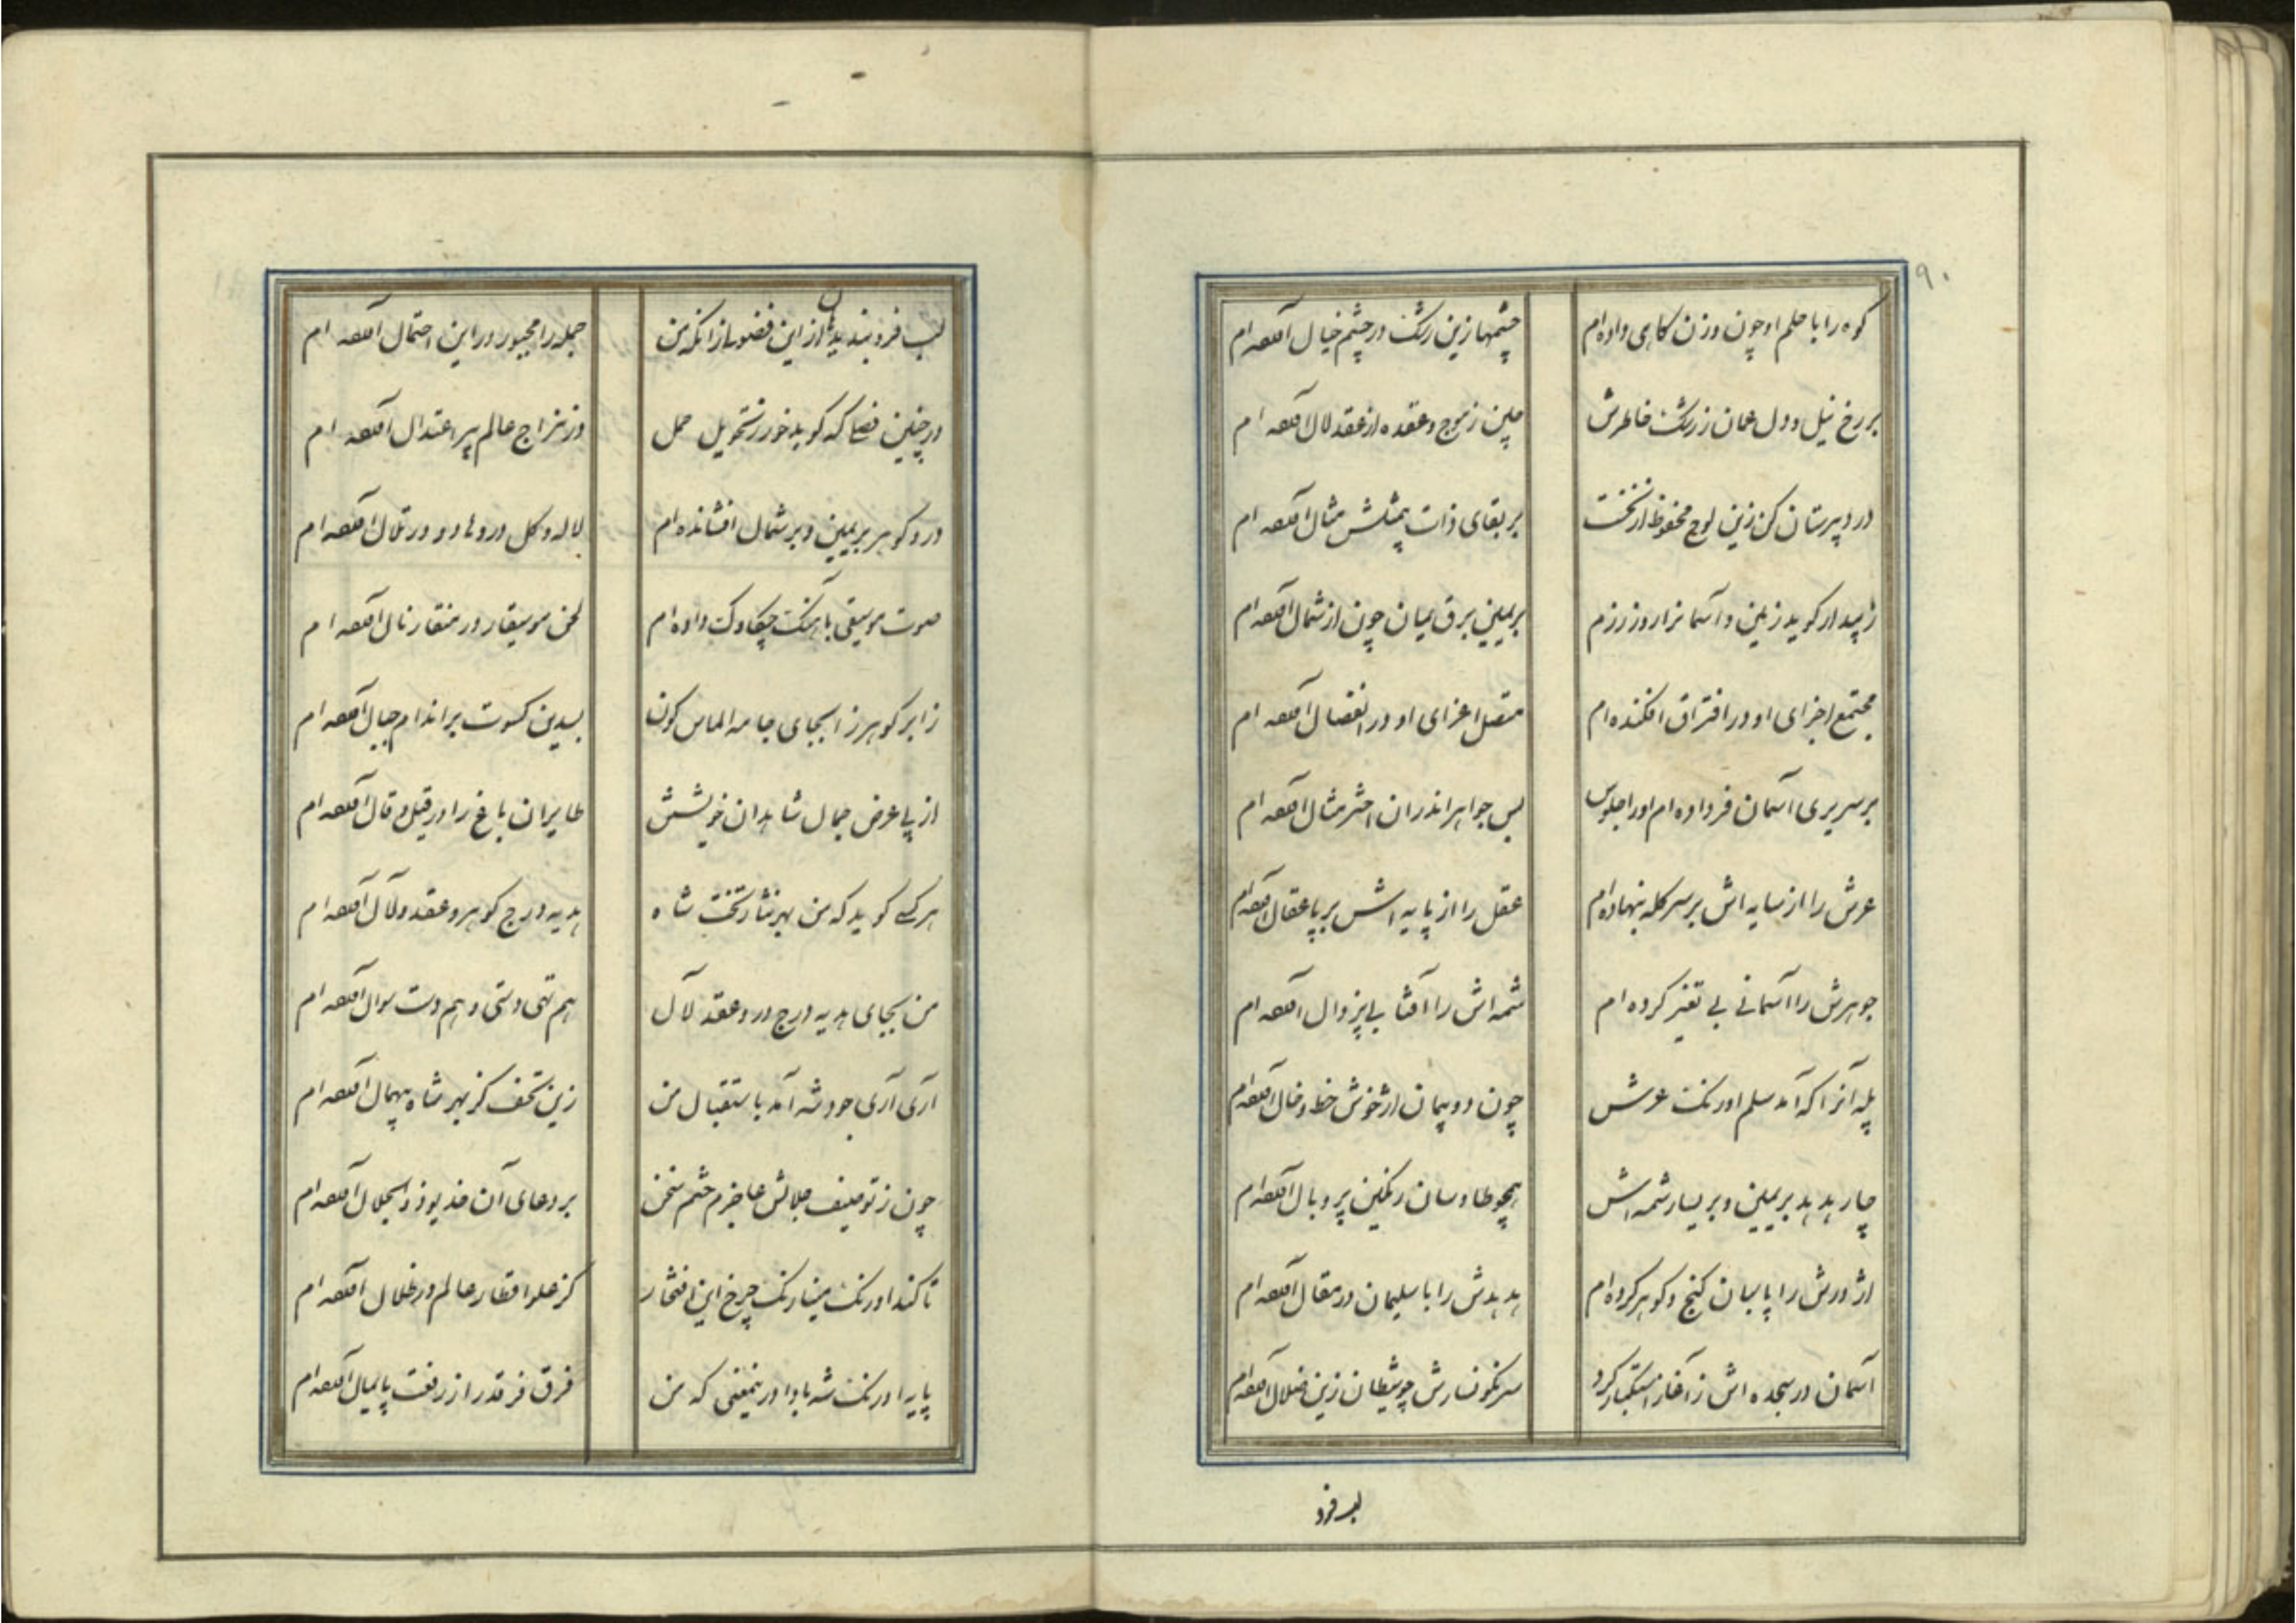 ۹۰
کوه را با حلم او چون وزن کاهی داده‌ام چشمها زین رشک در چشم خیال افکنده‌ام
بر رخ نیل و دل عمان ز رشک خاطرش چین ز موج و عقده از عقد لآل افکنده‌ام
در دبیرستان کن زین لوح محفوظ از نخست بر بقای ذات بیمثلش مثال افکنده‌ام
گوید زمین و آسمانرا روز رزم بر یمین برق یمان چون از شمال افکنده‌ام
مجتمع اجزای او در افتراق افکنده‌ام متصل اعزای او در انفصال افکنده‌ام
بر سریری آسمان فر داده‌ام او را جلوس بس جواهر اندران اختر مثال افکنده‌ام
عرش را از سایه‌اش بر سر کله بنهاده‌ام عقل را از پایه‌اش بر پا عقال افکنده‌ام
جوهرش را آسمانی بی تغیر کرده‌ام شمه‌اش را آفتابی بیزوال افکنده‌ام
پله آنرا که آمد سلم اورنگ عرش چون دو پیمان از خوش خط و خال افکنده‌ام
چار هدهد بر یمین و بر یسار شمه‌اش همچو طاوسان رنگین پر و بال افکنده‌ام
اژدرش را پاسبان گنج و گوهر کرده‌ام هدهدش را با سلیمان در مقال افکنده‌ام
آسمان در سجده‌اش ز آغاز استکبار کرد سرنگونسارش چو شیطان زین ضلال افکنده‌ام
لب فرو
لب فرو بندید از این فضول زانکه من جمله را مجبور در این احتمال افکنده‌ام
در چنین فصلی که گوید خور ز تحویل حمل در مزاج عالم پیر اعتدال افکنده‌ام
در و گوهر بر یمین و بر شمال افشانده‌ام لاله و گل در وهاد و در تلال افکنده‌ام
صوت موسیقی بآهنگ چکاوک داده‌ام لحن موسیقار در منقار نال افکنده‌ام
ز ابر گوهرزا بجای جامه الماس گون بسدین کسوت بر اندام جبال افکنده‌ام
از پی عرض جمال شاهدان خویشش طایران باغ را در قیل و قال افکنده‌ام
هر کسی گوید که من بهر نثار تخت شاه هدیه درج گوهر و عقد لآل افکنده‌ام
من بجای هدیه درج در و عقد لآل هم تهی دستی و هم دست سوال افکنده‌ام
آری آری جود شه آمد باستقبال من زین تحف کز بهر شاه بیهمال افکنده‌ام
چون ز توصیف جلالش عاجزم ختم سخن بر دعای آن خدیو ذوالجلال افکنده‌ام
تا کند اورنگ مینا رنگ چرخ این افتخار کز علو اقطار عالم در ظلال افکنده‌ام
پایه اورنگ شه بادا درینمعنی که من فرق فرقد را ز رفعت پایمال افکنده‌ام